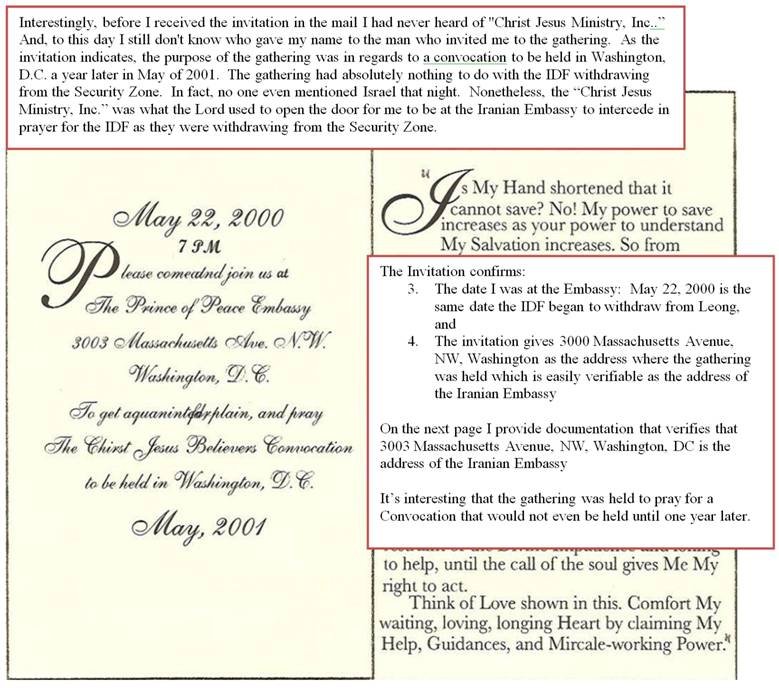 Interestingly, before I received the invitation in the mail I had never heard of "Christ Jesus Ministry, Inc..”
And, to this day I still don't know who gave my name to the man who invited me to the gathering.  As the
invitation indicates, the purpose of the gathering was in regards to a convocation to be held in Washington,
D.C. a year later in May of 2001.  The gathering had absolutely nothing to do with the IDF withdrawing
from the Security Zone.  In fact, no one even mentioned Israel that night.  Nonetheless, the “Christ Jesus
Ministry, Inc.” was what the Lord used to open the door for me to be at the Iranian Embassy to intercede in
prayer for the IDF as they were withdrawing from the Security Zone.
May 22, 2000
7 PM
Please comeatnd join us at
The Prince of Peace Embassy
3003 Massachusetts Ave. N.W.
Washington, D.C.
To get and pray
The Chirst Jesus Believers Convocation
to be held in Washington, D.C.
May, 2001
"Is My Hand shortened that it
cannot save? No! My power to save
increases as your power to understand
My Salvation increases. So from
The Invitation confirms:
3. The date I was at the Embassy:  May 22, 2000 is the
same date the IDF began to withdraw from Leong,
and
4. The invitation gives 3000 Massachusetts Avenue,
NW, Washington as the address where the gathering
was held which is easily verifiable as the address of
the Iranian Embassy
On the next page I provide documentation that verifies that
3003 Massachusetts Avenue, NW, Washington, DC is the
address of the Iranian Embassy
It’s interesting that the gathering was held to pray for a
Convocation that would not even be held until one year later.
to help, until the call of the soul gives Me My
right to act.
Think of Love shown in this. Comfort My
waiting, loving, longing Heart by claiming My
Help, Guidances, and Mircale-working Power."